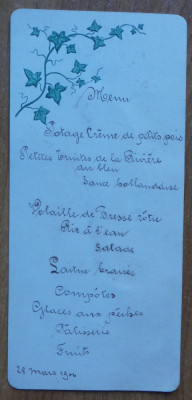 Menu
Potage Crème de petits pois
Petites Truites de la Rivière
au bleu
Sauce hollandaise
Volaille de Bresse rôtie
Riz à l'eau
Salade
Compôtes
Glaces aux pêches
Pâtisserie
Fruits
28 Mars